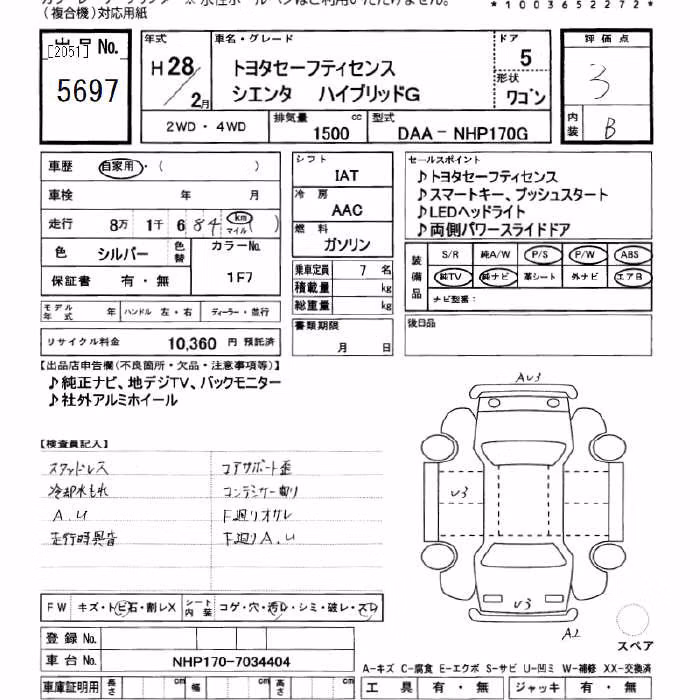 (複合機)対応用紙
*1003652272*
出品No.
[2051]
5697
年式
H28
2月
車名・グレード
トヨタセーフティセンス
シエンタ ハイブリッドG
ドア
5
形状
ワゴン
評価点
3
内装
B
2WD・4WD
排気量
1500 cc
型式
DAA-NHP170G
車歴 自家用・( )
車検 年 月
走行 8万 1千 684 km マイル ( )
色 シルバー 色替 カラーNo.
保証書 有・無 1F7
モデル年式 年 ハンドル 左・右 ディーラー・並行
リサイクル料金 10,360 円 預託済
シフト
IAT
冷房
AAC
燃料
ガソリン
乗車定員 7 名
積載量 kg
総重量 kg
書類期限
月 日
セールスポイント
♪トヨタセーフティセンス
♪スマートキー、プッシュスタート
♪LEDヘッドライト
♪両側パワースライドドア
装備品
S/R 純A/W P/S P/W ABS
純TV 純ナビ 革シート 外ナビ エアB
ナビ型番:
後日品
【出品店申告欄(不良箇所・欠品・注意事項等)】
♪純正ナビ、地デジTV、バックモニター
♪社外アルミホイール
【検査員記入】
スタッドレス
冷却水もれ
A.U
走行時異音
コアサポート歪
コンデンサー曲り
下廻りオサレ
下廻りA.U
AU3
U3
U3
A2
スペア
FW キズ・トビ石・割レX シート内装 コゲ・穴・汚レ・シミ・破レ・スレ
登録No.
車台No. NHP170-7034404
車庫証明用 長さ cm 幅 cm 高さ cm
A-キズ C-腐食 E-エクボ S-サビ U-凹ミ W-補修 XX-交換済
工具 有・無 ジャッキ 有・無